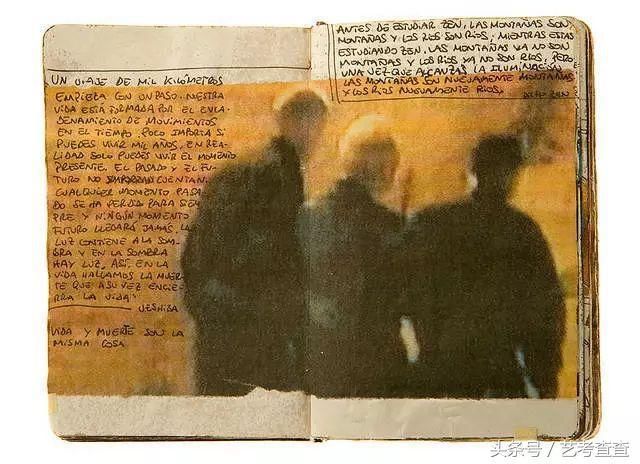 UN VIAJE DE MIL KILÓMETROS
EMPIEZA CON UN PASO. NUESTRA
VIDA ESTÁ FORMADA POR EL ENCA-
DENAMIENTO DE MOVIMIENTOS
EN EL TIEMPO. POCO IMPORTA SI
PUEDES VIVIR MIL AÑOS, EN REA-
LIDAD SOLO PUEDES VIVIR EL MOMENTO
PRESENTE. EL PASADO Y EL FU-
TURO NO CUENTAN.
CUALQUIER MOMENTO PASA-
DO SE HA PERDIDO PARA SIEM-
PRE Y NINGÚN MOMENTO
FUTURO LLEGARÁ JAMÁS. LA
LUZ CONTIENE A LA SOM-
BRA Y EN LA SOMBRA
HAY LUZ. ASÍ, EN LA
VIDA HALLAMOS LA MUER-
TE QUE A SU VEZ ENCIE-
RRA LA VIDA"
UESHIBA
VIDA Y MUERTE SON LA
MISMA COSA
ANTES DE ESTUDIAR ZEN, LAS MONTAÑAS SON
MONTAÑAS Y LOS RÍOS SON RÍOS; MIENTRAS ESTÁS
ESTUDIANDO ZEN, LAS MONTAÑAS YA NO SON
MONTAÑAS Y LOS RÍOS YA NO SON RÍOS, PERO
UNA VEZ QUE ALCANZAS LA ILUMINACIÓN
LAS MONTAÑAS SON NUEVAMENTE MONTAÑAS
Y LOS RÍOS NUEVAMENTE RÍOS.
DICHO ZEN
头条号 / 艺考查查